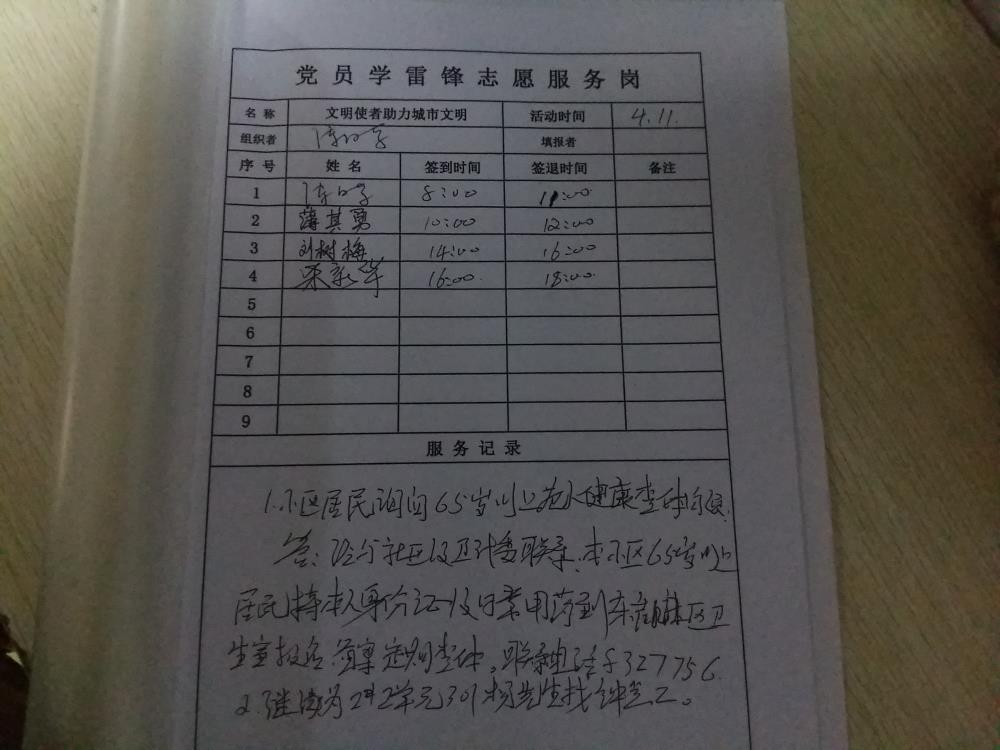 党员学雷锋志愿服务岗
名称 文明使者助力城市文明 活动时间 4.11.
组织者 填报者
序号 姓名 签到时间 签退时间 备注
1 8:00 11:00
2 薄其勇 10:00 12:00
3 刘树梅 14:00 16:00
4 16:00 18:00
5
6
7
8
9
服务记录
1.小区居民询问65岁以上老人健康查体
答: 社区及卫计委联系,本小区65岁以上
居民持本人身份证及日常用药到 区卫
生室报名 查体,联系电话8327756.
2.继续为2#2单元301杨先生找钟点工。